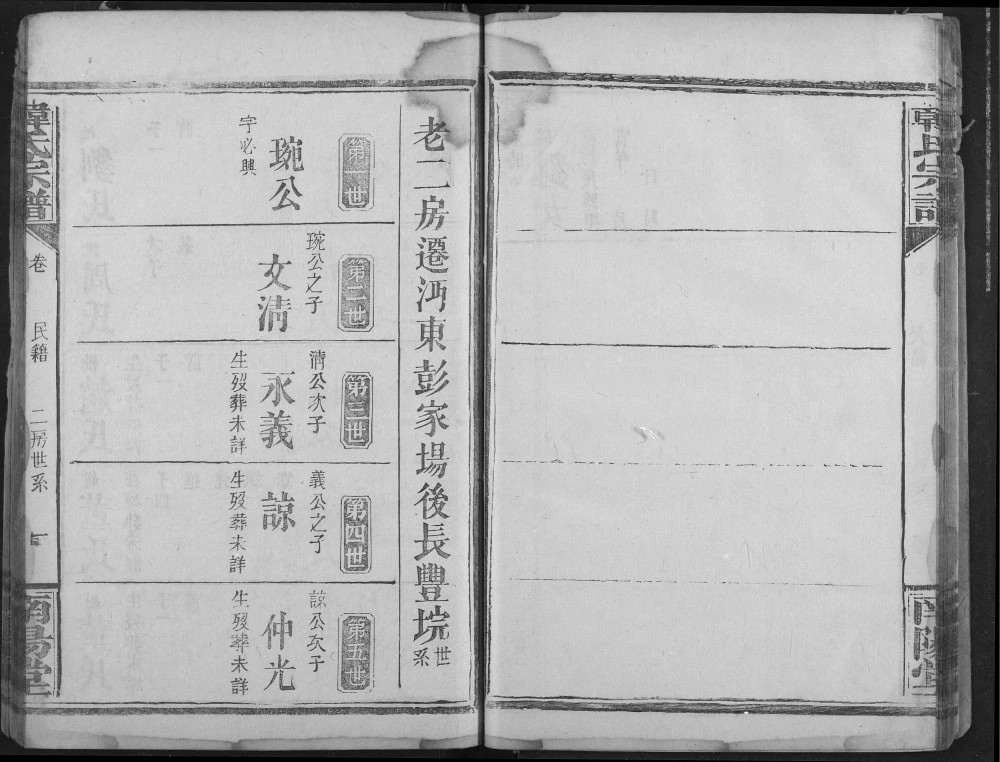 韓氏宗譜
南陽堂
老二房遷沔東彭家場後長豐垸世系
第一世
琬公
字必興
第二世
琬公之子
文清
第三世
清公次子
永義
生歿葬未詳
第四世
義公之子
諒
生歿葬未詳
第五世
諒公次子
仲光
生歿葬未詳
韓氏宗譜
卷
民籍
二房世系
南陽堂